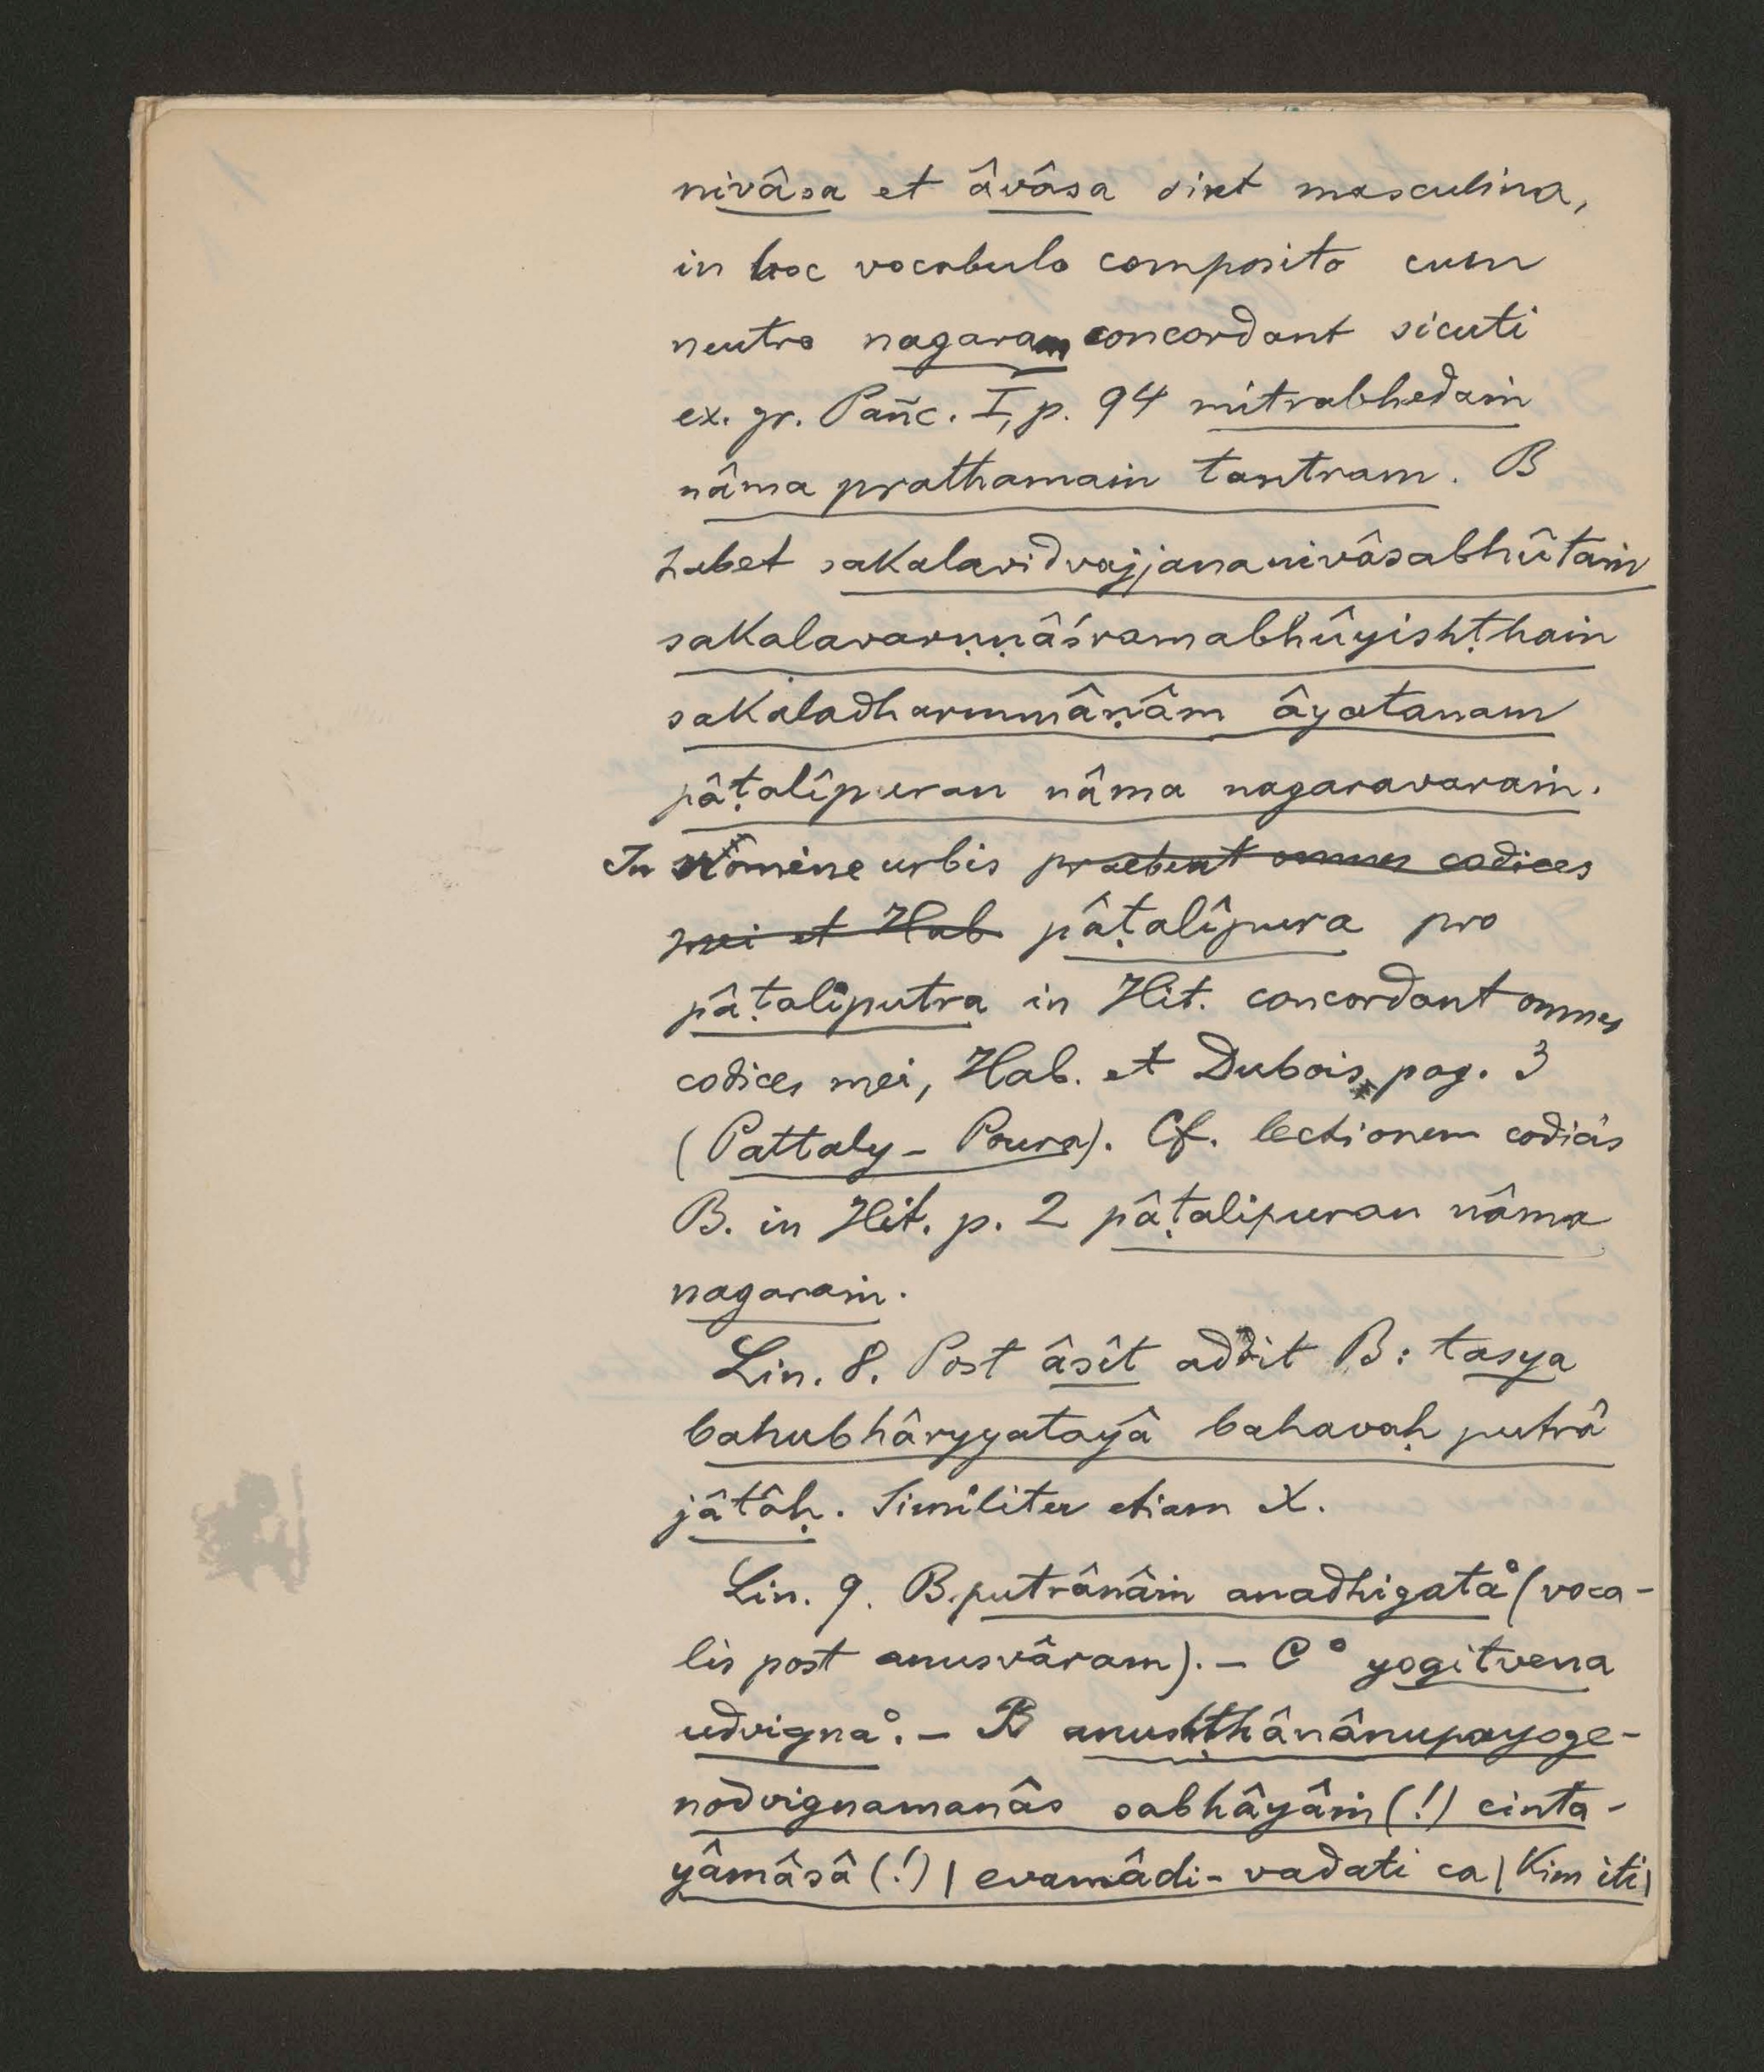 nivâsa et âvâsa sint masculina,
in hoc vocabulo composito cum
neutro nagaram concordant sicuti
ex. gr. Pañc. I, p. 94 mitrabhedaṁ
nâma prathamaṁ tantram. B
habet sakalavidvajjananivâsabhûtaṁ
sakalavarṇṇâśramabhûyishṭhaṁ
sakaladharmmâṇâm âyatanam
pâṭalîpuran nâma nagaravaraṁ.
In nomine urbis praebent omnes codices
mei et Hab pâṭalîpura pro
pâṭaliputra in Hit. concordant omnes
codices mei, Hab. et Dubois, pag. 3
(Pattaly-Poura). Cf. lectionem codicis
B. in Hit. p. 2 pâṭalipuran nâma
nagaraṁ.
Lin. 8. Post âsît addit B: tasya
bahubhâryyatayâ bahavaḥ putrâ
jâtâḥ. Similiter etiam X.
Lin. 9. B. putrânâṁ anadhigata° (voca-
lis post anusvâram). — C ° yogitvena
udvigna°. — B anushṭhânânupayoge-
nodvignamanâs sabhâyâṁ (!) cinta-
yâmâsâ (!) | evamâdi- vadati ca | Kim iti |